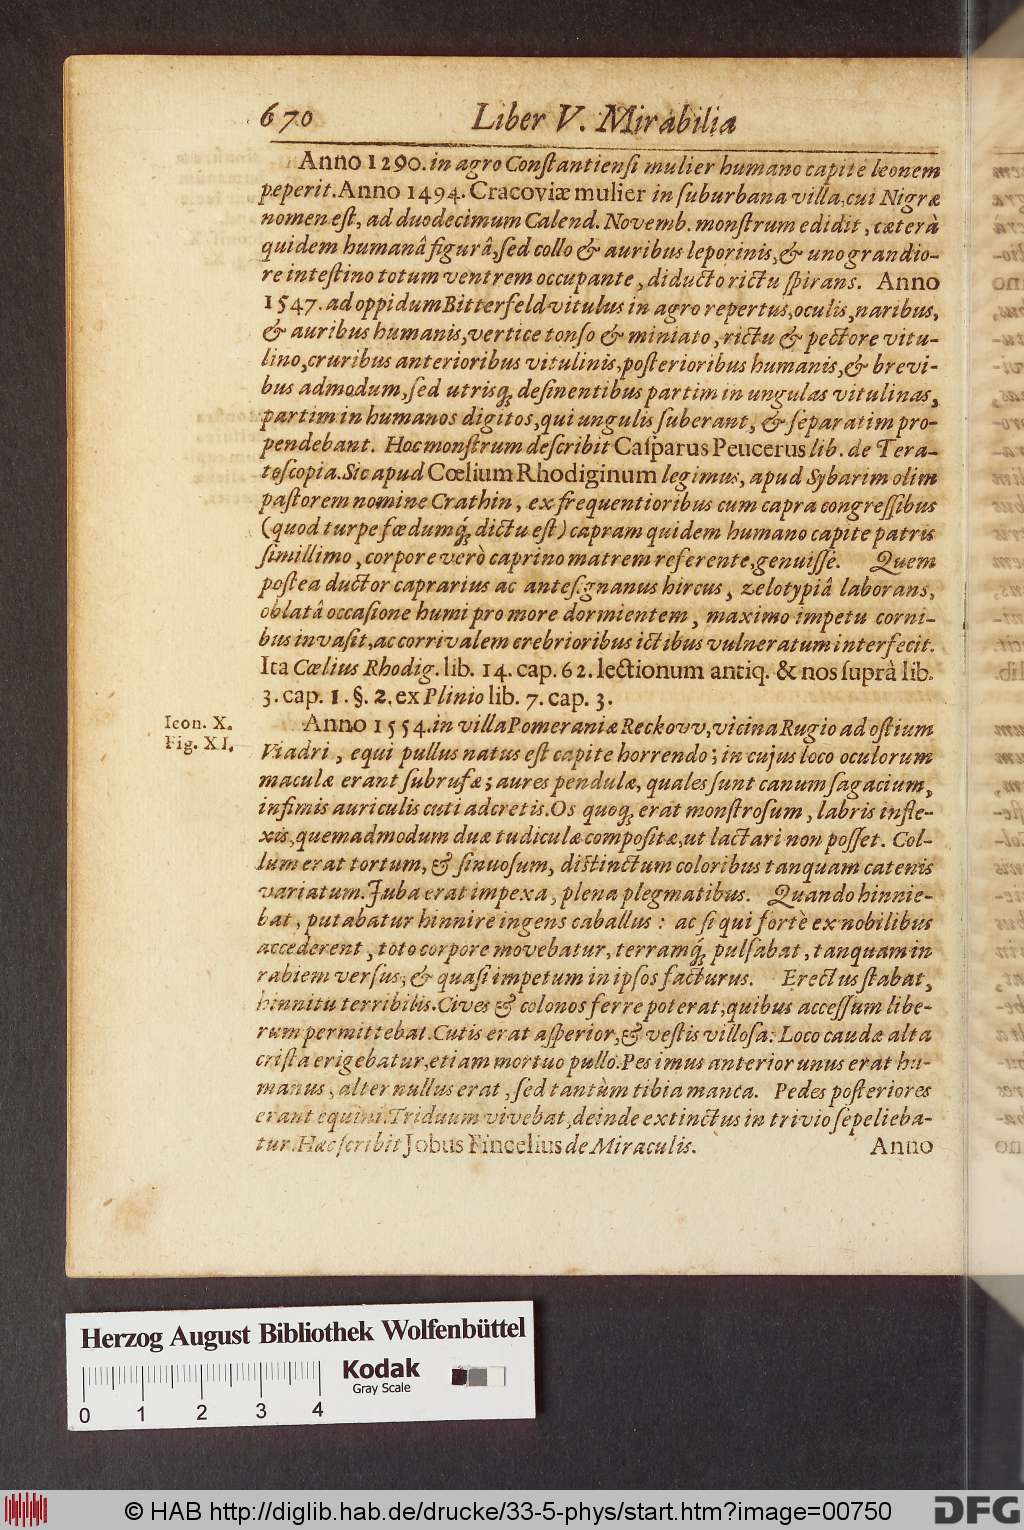 670 Liber V. Mirabilia
Anno 1290. in agro Conſtantienſi mulier humano capite leonem
peperit. Anno 1494. Cracoviæ mulier in ſuburbana villa, cui Nigræ
nomen eſt, ad duodecimum Calend. Novemb. monſtrum edidit, cæterà
quidem humanâ figurâ, ſed collo & auribus leporinis, & uno grandio-
re inteſtino totum ventrem occupante, diducto rictu ſpirans. Anno
1547. ad oppidum Bitterfeld vitulus in agro repertus, oculis, naribus,
& auribus humanis, vertice tonſo & miniato, rictu & pectore vitu-
lino, cruribus anterioribus vitulinis, poſterioribus humanis, & brevi-
bus admodum, ſed utrisq; deſinentibus partim in ungulas vitulinas,
partim in humanos digitos, qui ungulis ſuberant, & ſeparatim pro-
pendebant. Hoc monſtrum deſcribit Caſparus Peucerus lib. de Tera-
toſcopia. Sic apud Cœlium Rhodiginum legimus, apud Sybarim olim
paſtorem nomine Crathin, ex frequentioribus cum capra congreſſibus
(quod turpe fœdumq́; dictu eſt) capram quidem humano capite patris
ſimillimo, corpore verò caprino matrem referente, genuiſſe. Quem
poſtea ductor caprarius ac anteſignanus hircus, zelotypiâ laborans,
oblatâ occaſione humi pro more dormientem, maximo impetu corni-
bus invaſit, ac corrivalem crebrioribus ictibus vulneratum interfecit.
Ita Cœlius Rhodig. lib. 14. cap. 62. lectionum antiq. & nos ſuprà lib.
3. cap. 1. §. 2. ex Plinio lib. 7. cap. 3.
Icon. X.
Fig. XI.
Anno 1554. in villa Pomeraniæ Reckovv, vicina Rugio ad oſtium
Viadri, equi pullus natus eſt capite horrendo; in cujus loco oculorum
maculæ erant ſubrufæ; aures pendulæ, quales ſunt canum ſagacium,
infimis auriculis cuti adcretis. Os quoq; erat monſtroſum, labris infle-
xis, quemadmodum duæ tudiculæ compoſitæ, ut lactari non poſſet. Col-
lum erat tortum, & ſinuoſum, diſtinctum coloribus tanquam catenis
variatum. Juba erat impexa, plena plegmatibus. Quando hinnie-
bat, putabatur hinnire ingens caballus: ac ſi qui fortè ex nobilibus
accederent, toto corpore movebatur, terramq́; pulſabat, tanquam in
rabiem verſus, & quaſi impetum in ipſos facturus. Erectus ſtabat,
hinnitu terribilis. Cives & colonos ferre poterat, quibus acceſſum libe-
rum permittebat. Cutis erat aſperior, & veſtis villoſa: Loco caudæ alta
criſta erigebatur, etiam mortuo pullo. Pes imus anterior unus erat hu-
manus, alter nullus erat, ſed tantùm tibia manca. Pedes poſteriores
erant equini. Triduum vivebat, deinde extinctus in trivio ſepelieba-
tur. Hæc ſcribit Jobus Fincelius de Miraculis. Anno
Herzog August Bibliothek Wolfenbüttel
Kodak
Gray Scale
0 1 2 3 4
© HAB http://diglib.hab.de/drucke/33-5-phys/start.htm?image=00750
DFG